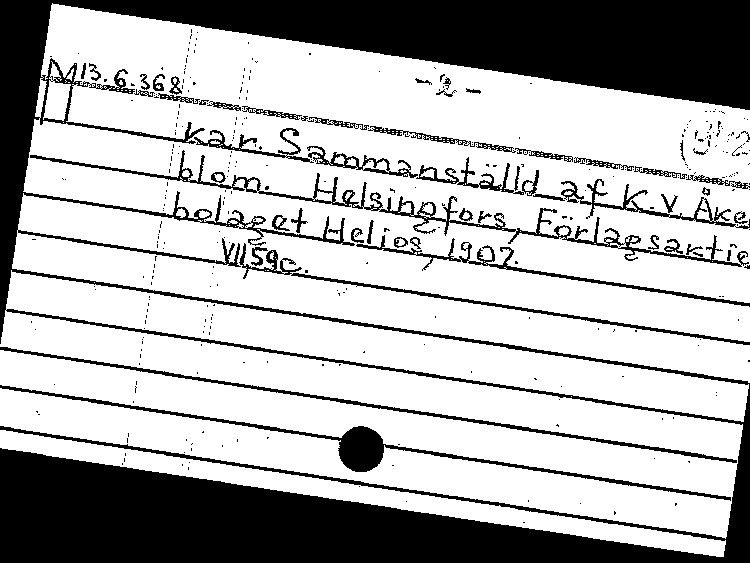 M 13.6.368.
-2-
kar. Sammanställd af K.V. Åke
blom. Helsingfors, Förlagsaktie
bolaget Helios, 1907.
VII, 59 c.